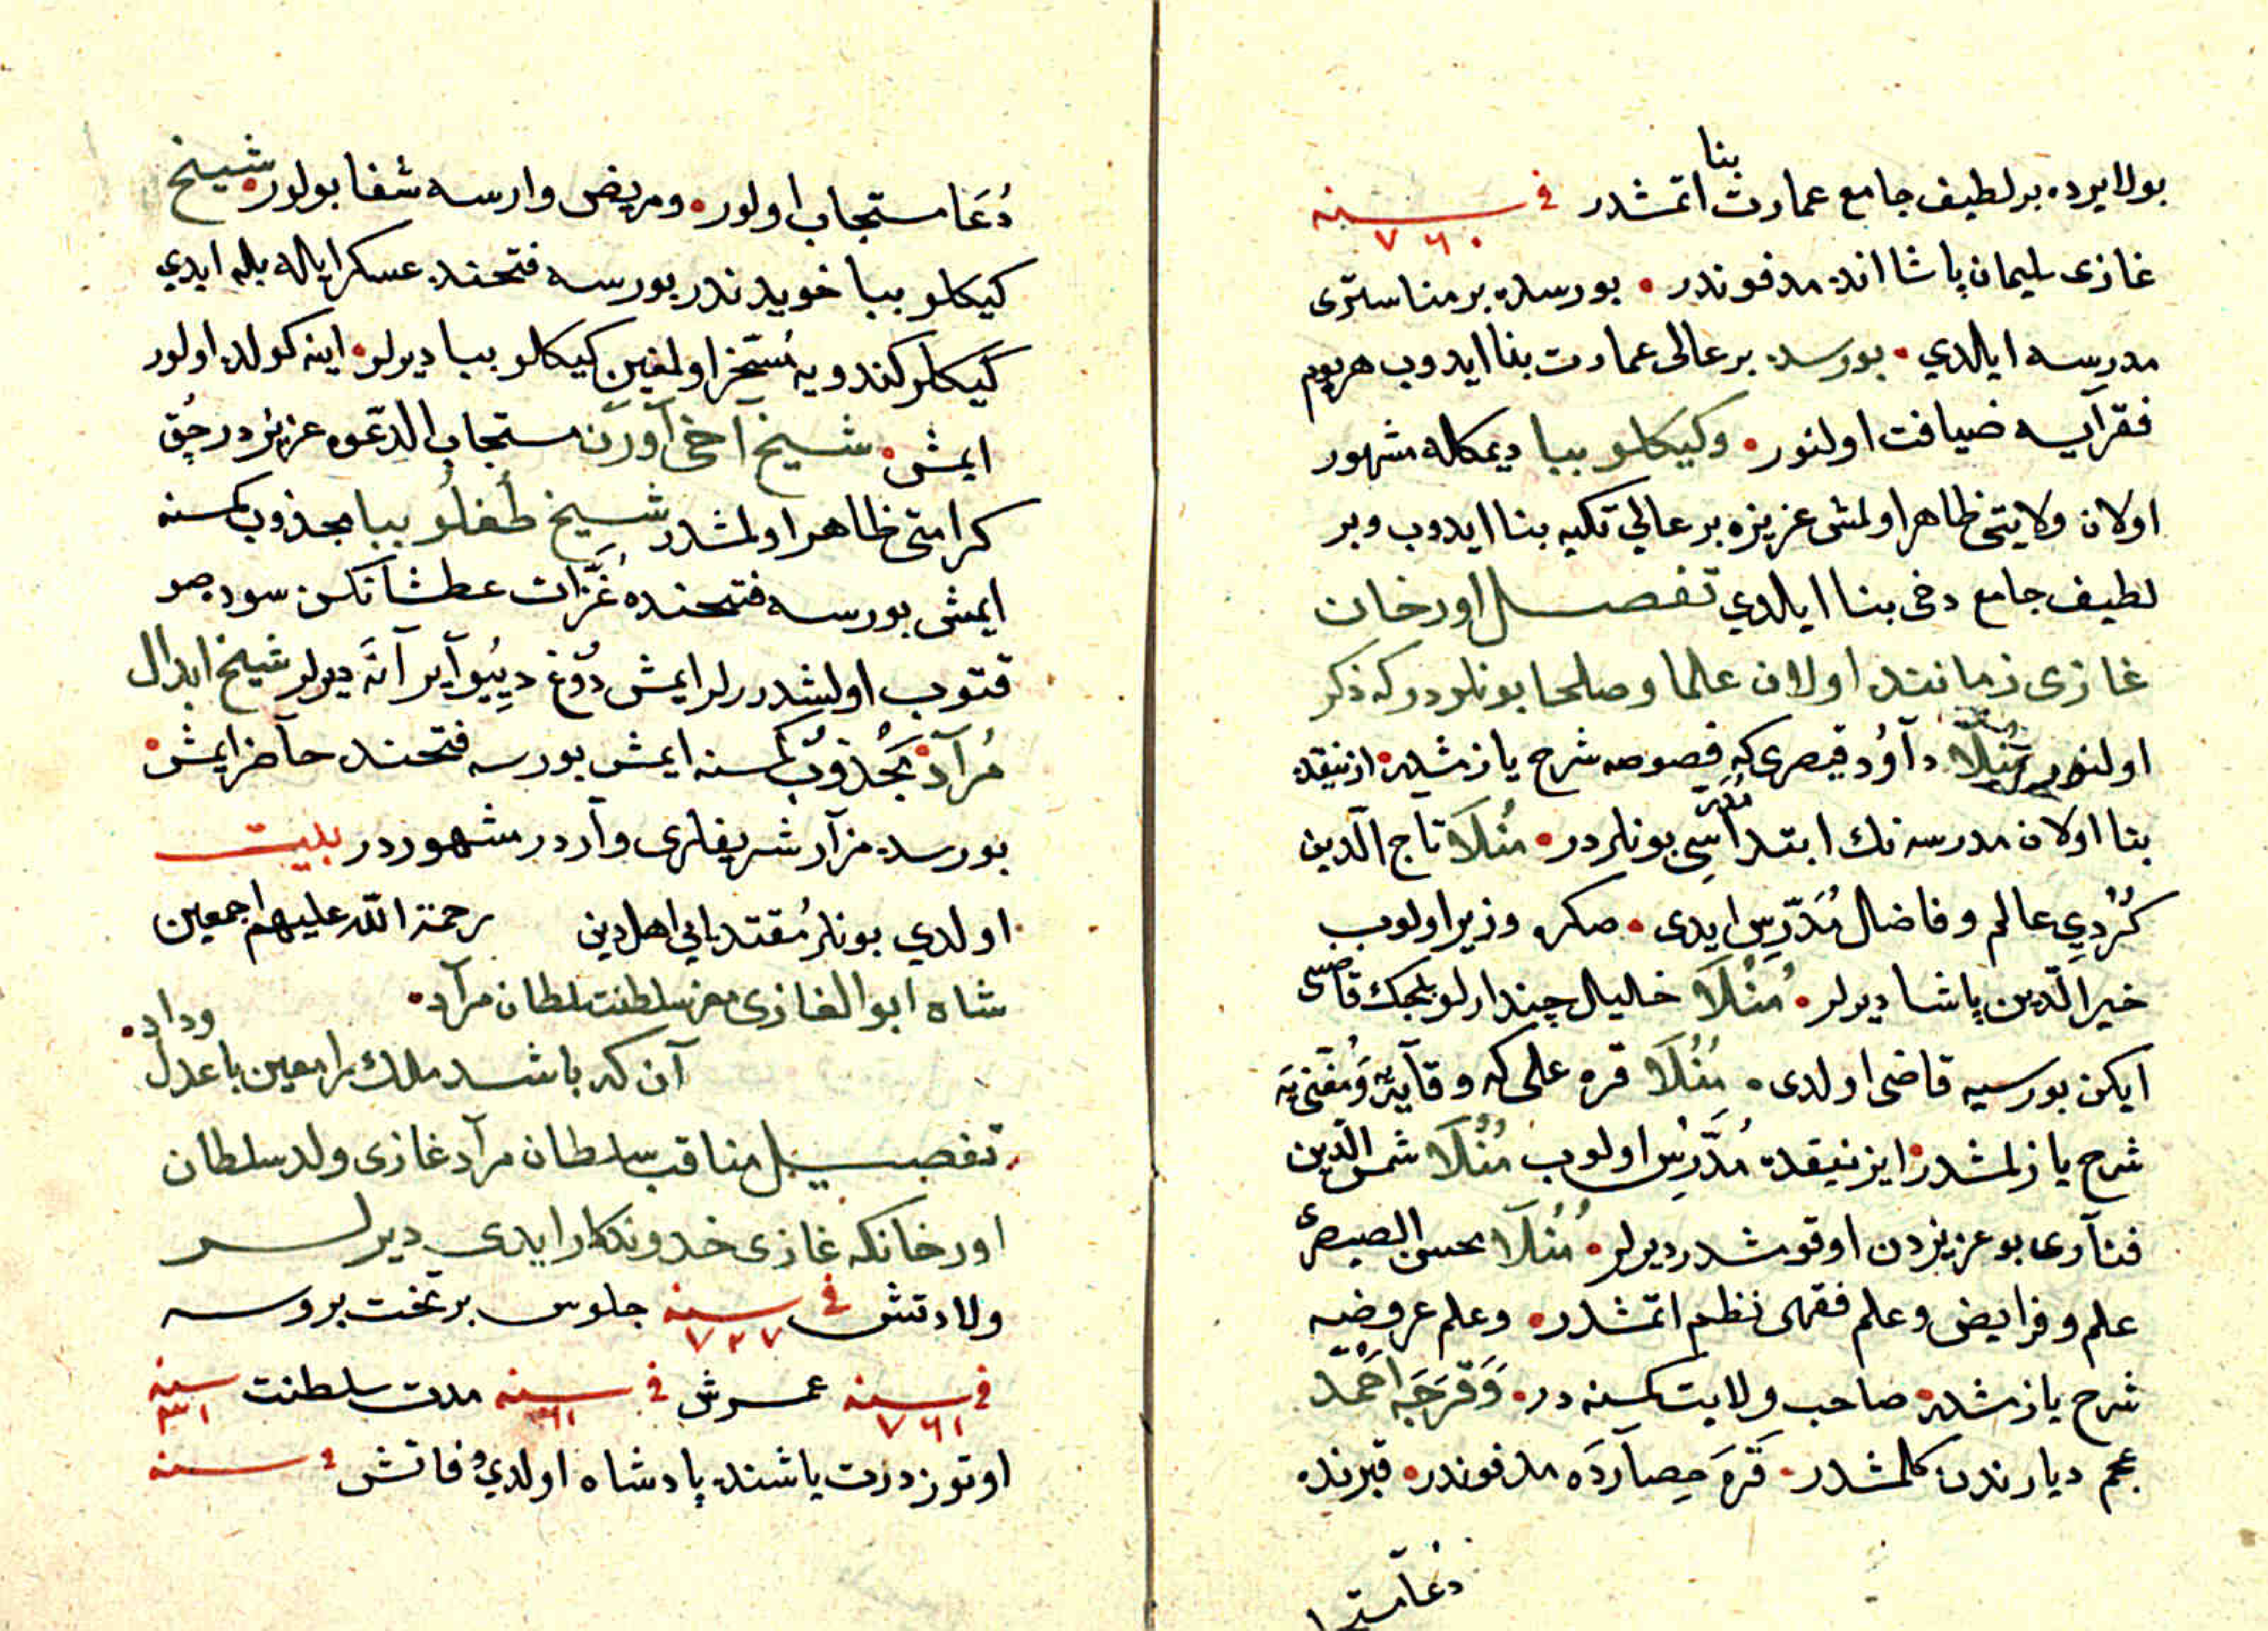 بنا
بولايرده بر لطيف جامع عمارت اتمشدر في سنه
٧٦٠
غازى سليمان پاشا انده مدفوندر • بورسده بر مناسترى
مدرسه ايلدي • بورسده بر عالى عمارت بنا ايدوب هر يوم
فقرآيه ضيافت اولنور • وكيكلو ببا ديمكله مشهور
اولان ولايتى ظاهر اولمش عزيزه بر عالي تكيه بنا ايدوب وبر
لطيف جامع دخى بنا ايلدي تفصــل اورخان
غازى زماننده اولان علما وصلحا بونلردر كه ذكر
اولنور مُنْلَا دآوُد قيصرى كه فصوصه شرح يازمشدر • ازنيقده
بنا اولان مدرسه نك ابتدا مُدَرِّسِى بونلردر • مُنْلَا تاج الدّين
كُرْدِي عالم و فاضل مُدَرِّس ايدى • صكره وزير اولوب
خير الدّين پاشا ديرلر • مُنْلَا خليل چندارلو بلجك قاضيسى
ايكن بورسيه قاضى اولدى • مُنْلَا قره على كه وقايَه وَمُغْنِىَه
شرح يازلمشدر • ايزنيقده مُدَّرِس اولوب مُنْلَا شمس الدّين
فنآرى بو عزيزدن اوقومشدر ديرلر • مُنْلَا محسن القيصرى
علم و فرايض و علم فقهى نظم اتمشدر • وعلم عروضيه
شرح يازمشدر • صاحب ولايت كسنه در • وَقَرَجَه اَحْمَد
عجم ديارندن كلمشدر • قَرَه حِصآرْدَه مدفوندر • قبرنده
دعا مستجا
دُعَا مستجاب اولور • ومريض وارسه شفا بولور • شيخ
كيكلو ببا خويدندر بورسه فتحنده عسكر ايله بله ايدي
كيكلر كندويه مُسَخَّر اولمغين كيكلو ببا ديرلر • اينه كولده اولور
ايمش • شيخ آخى آورَن مستجاب الدّعوه عزيزدر چُق
كرامتى ظاهر اولمشدر شيخ طُغْلُو ببا مجذوب كمسنه
ايمش بورسه فتحنده غُزّات عطشانكن سودجو
قتوب اولشدررلر ايمش دُوغ دِيبُو آير آنَه ديرلر شيخ ابدال
مُرآد • مَجْذُوبْ كمسنه ايمش بورسه فتحنده حآضر ايمش •
بورسده مزآر شريفلرى وآردر مشهوردر بيت
اولدي بونلر مُقتداى اهل دين رحمة الله عليهم اجمعين
شاه ابو الغازى معز سلطنت سلطان مرآد •
آن كه باشد ملك را معين با عدل وداد •
تفصيـل مناقب سلطان مرآد غازى ولد سلطان
اورخانكه غازى خدوندكار ايدى ديرلـر
ولادتش في سنه جلوس بر تخت بروسه
٧٢٧
في سنه عمــرش في سنه مدت سلطنت سنه
٧٦١ ٣١
اوتوز درت ياشنده پادشاه اولدي وفاتش في سنه